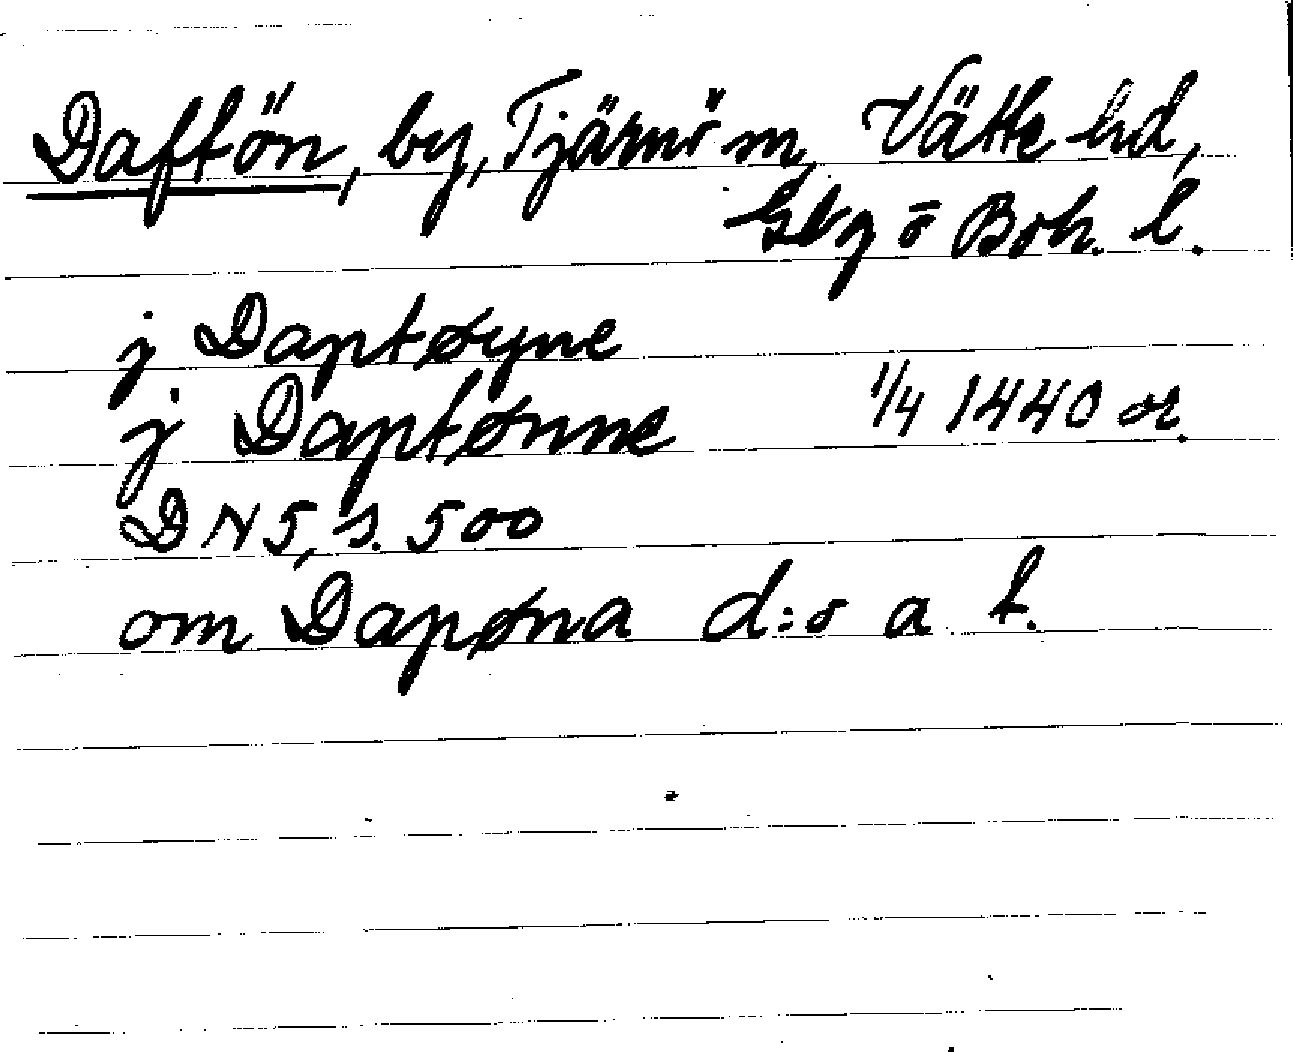 Daftön, by, Tjärnö sn, Vätte hd,
Gbg o Boh. l.
j Daptøyne
j Daptønne 1/4 1440 or.
DN 5, s. 500
om Dapøna d:o a t.